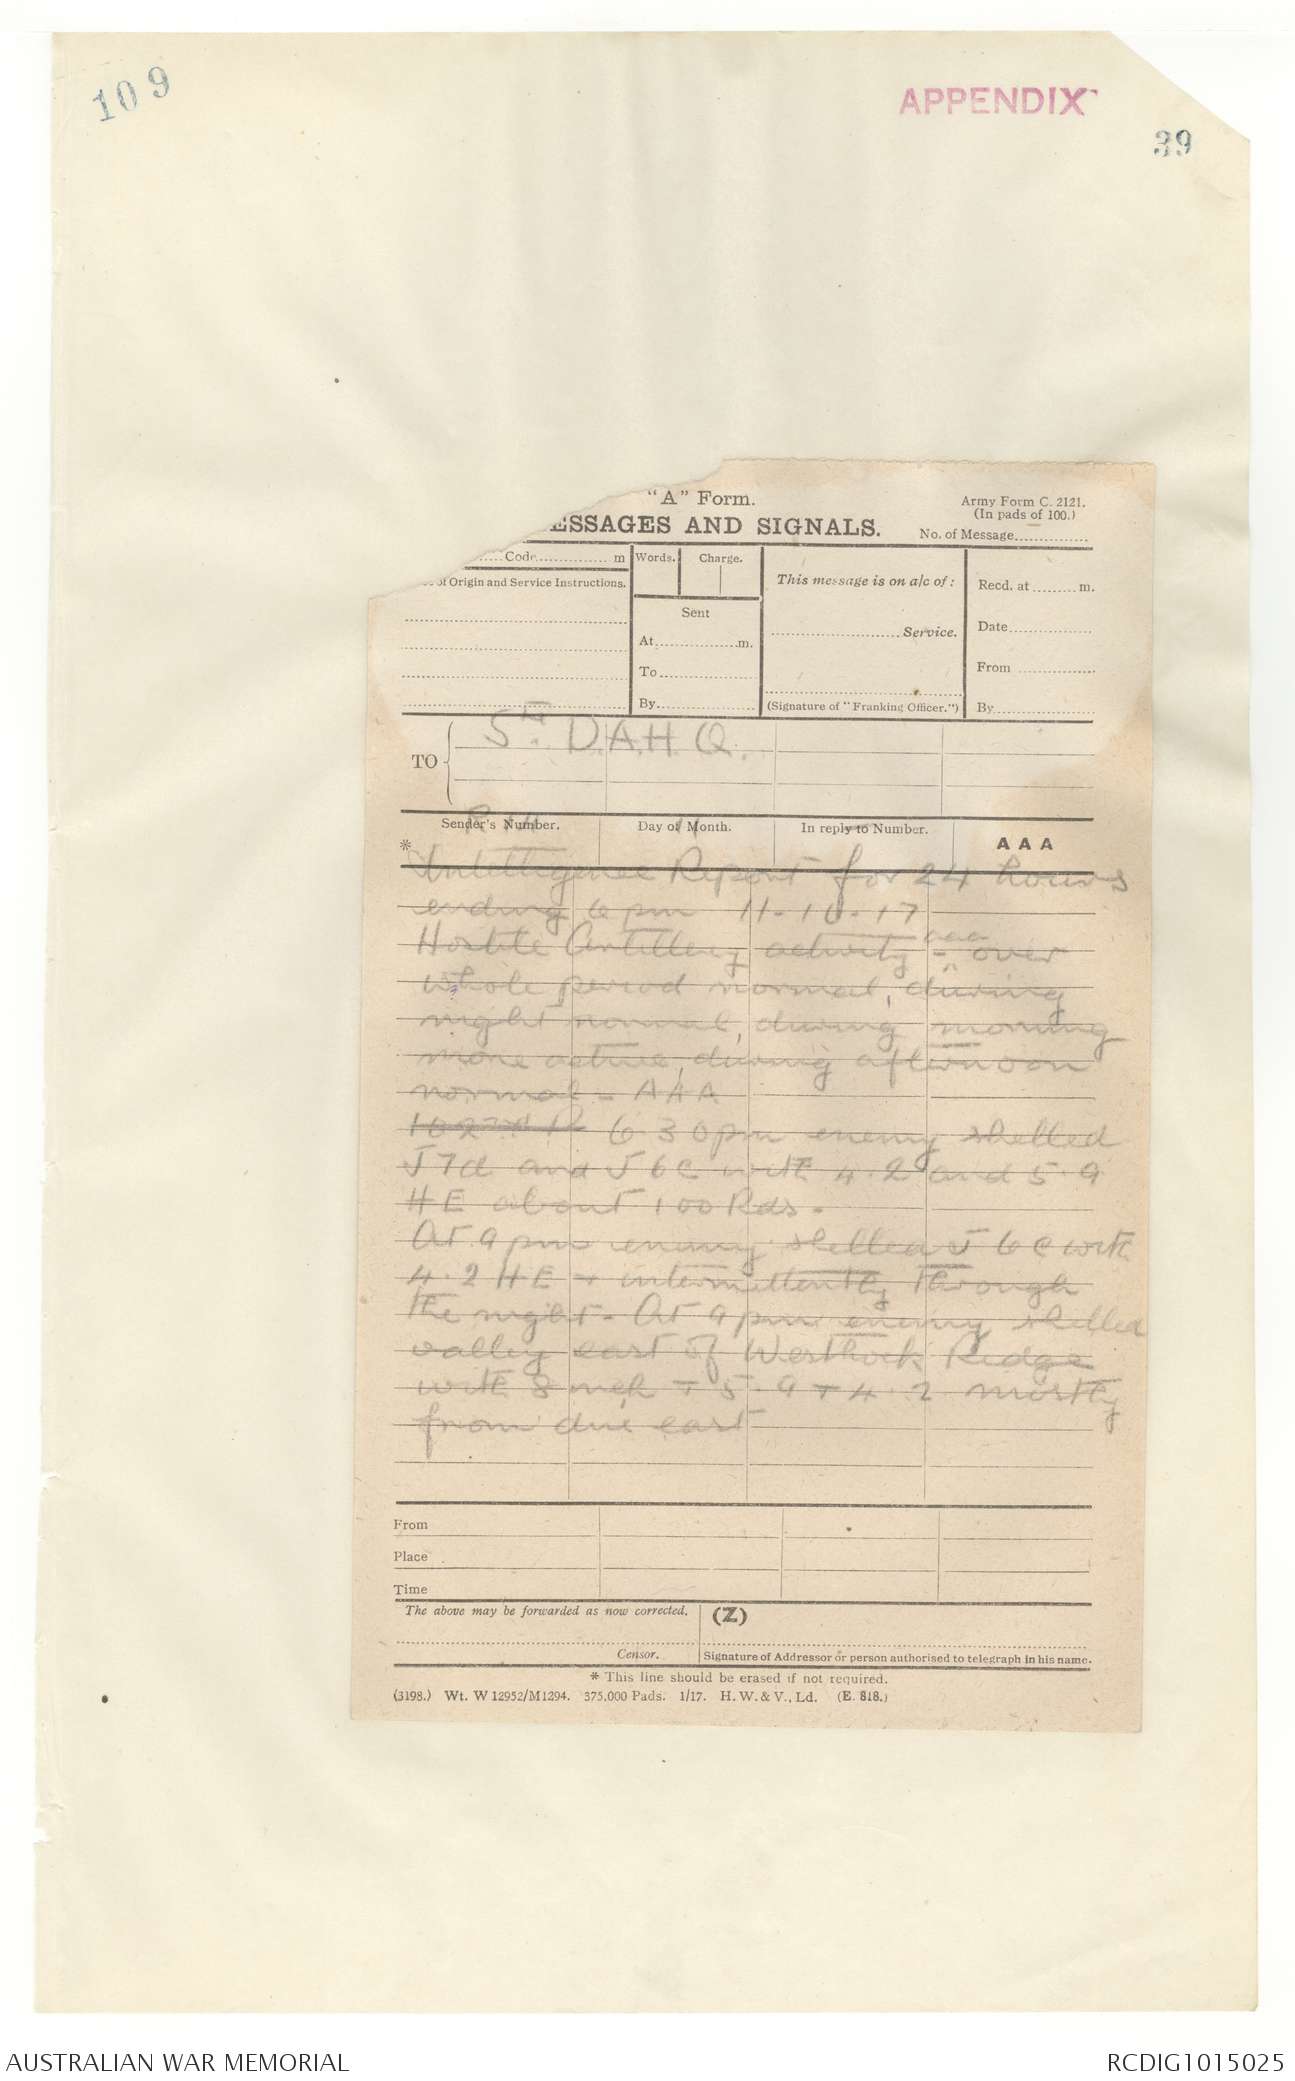 109
APPENDIX
39
"A" Form.
Army Form C. 2121.
(In pads of 100.)
ESSAGES AND SIGNALS.
No. of Message
Code m
Words.
Charge.
This message is on a/c of:
Recd. at m.
of Origin and Service Instructions.
Sent
Service.
Date
At m.
To
From
By
(Signature of "Franking Officer.")
By
TO
5TH D.A.H.Q.
Sender's Number.
Day of Month.
In reply to Number.
AAA
11
* Intelligence Report for 24 hours
ending 6 pm 11-10-17
Hostile Artillery activity - aaa over
whole period normal, during
night normal, during morning
more active, during afternoon
normal - AAA
6.30pm enemy shelled
J7d and J6c with 4.2 and 5.9
HE about 100 Rds.
At 9 pm enemy shelled J6c with
4.2 HE + intermittently through
the night. At 9 pm enemy shelled
valley east of Westhoek Ridge
with 8 inch + 5.9 + 4.2 mostly
from due east
From
Place
Time
The above may be forwarded as now corrected.
(Z)
Censor.
Signature of Addressor or person authorised to telegraph in his name.
* This line should be erased if not required.
(3198.) Wt. W 12952/M1294. 375,000 Pads. 1/17. H. W. & V., Ld. (E. 818.)
AUSTRALIAN WAR MEMORIAL
RCDIG1015025